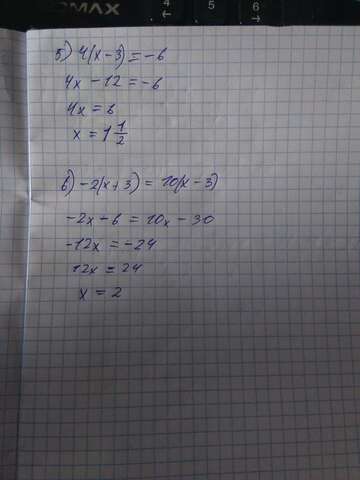 OMAX
4
5
6
←
→
5) 4(x-3)=-6
4x -12=-6
4x = 6
x = 1 1/2
6) -2(x+3) = 10(x-3)
-2x-6 = 10x-30
-12x = -24
12x = 24
x = 2